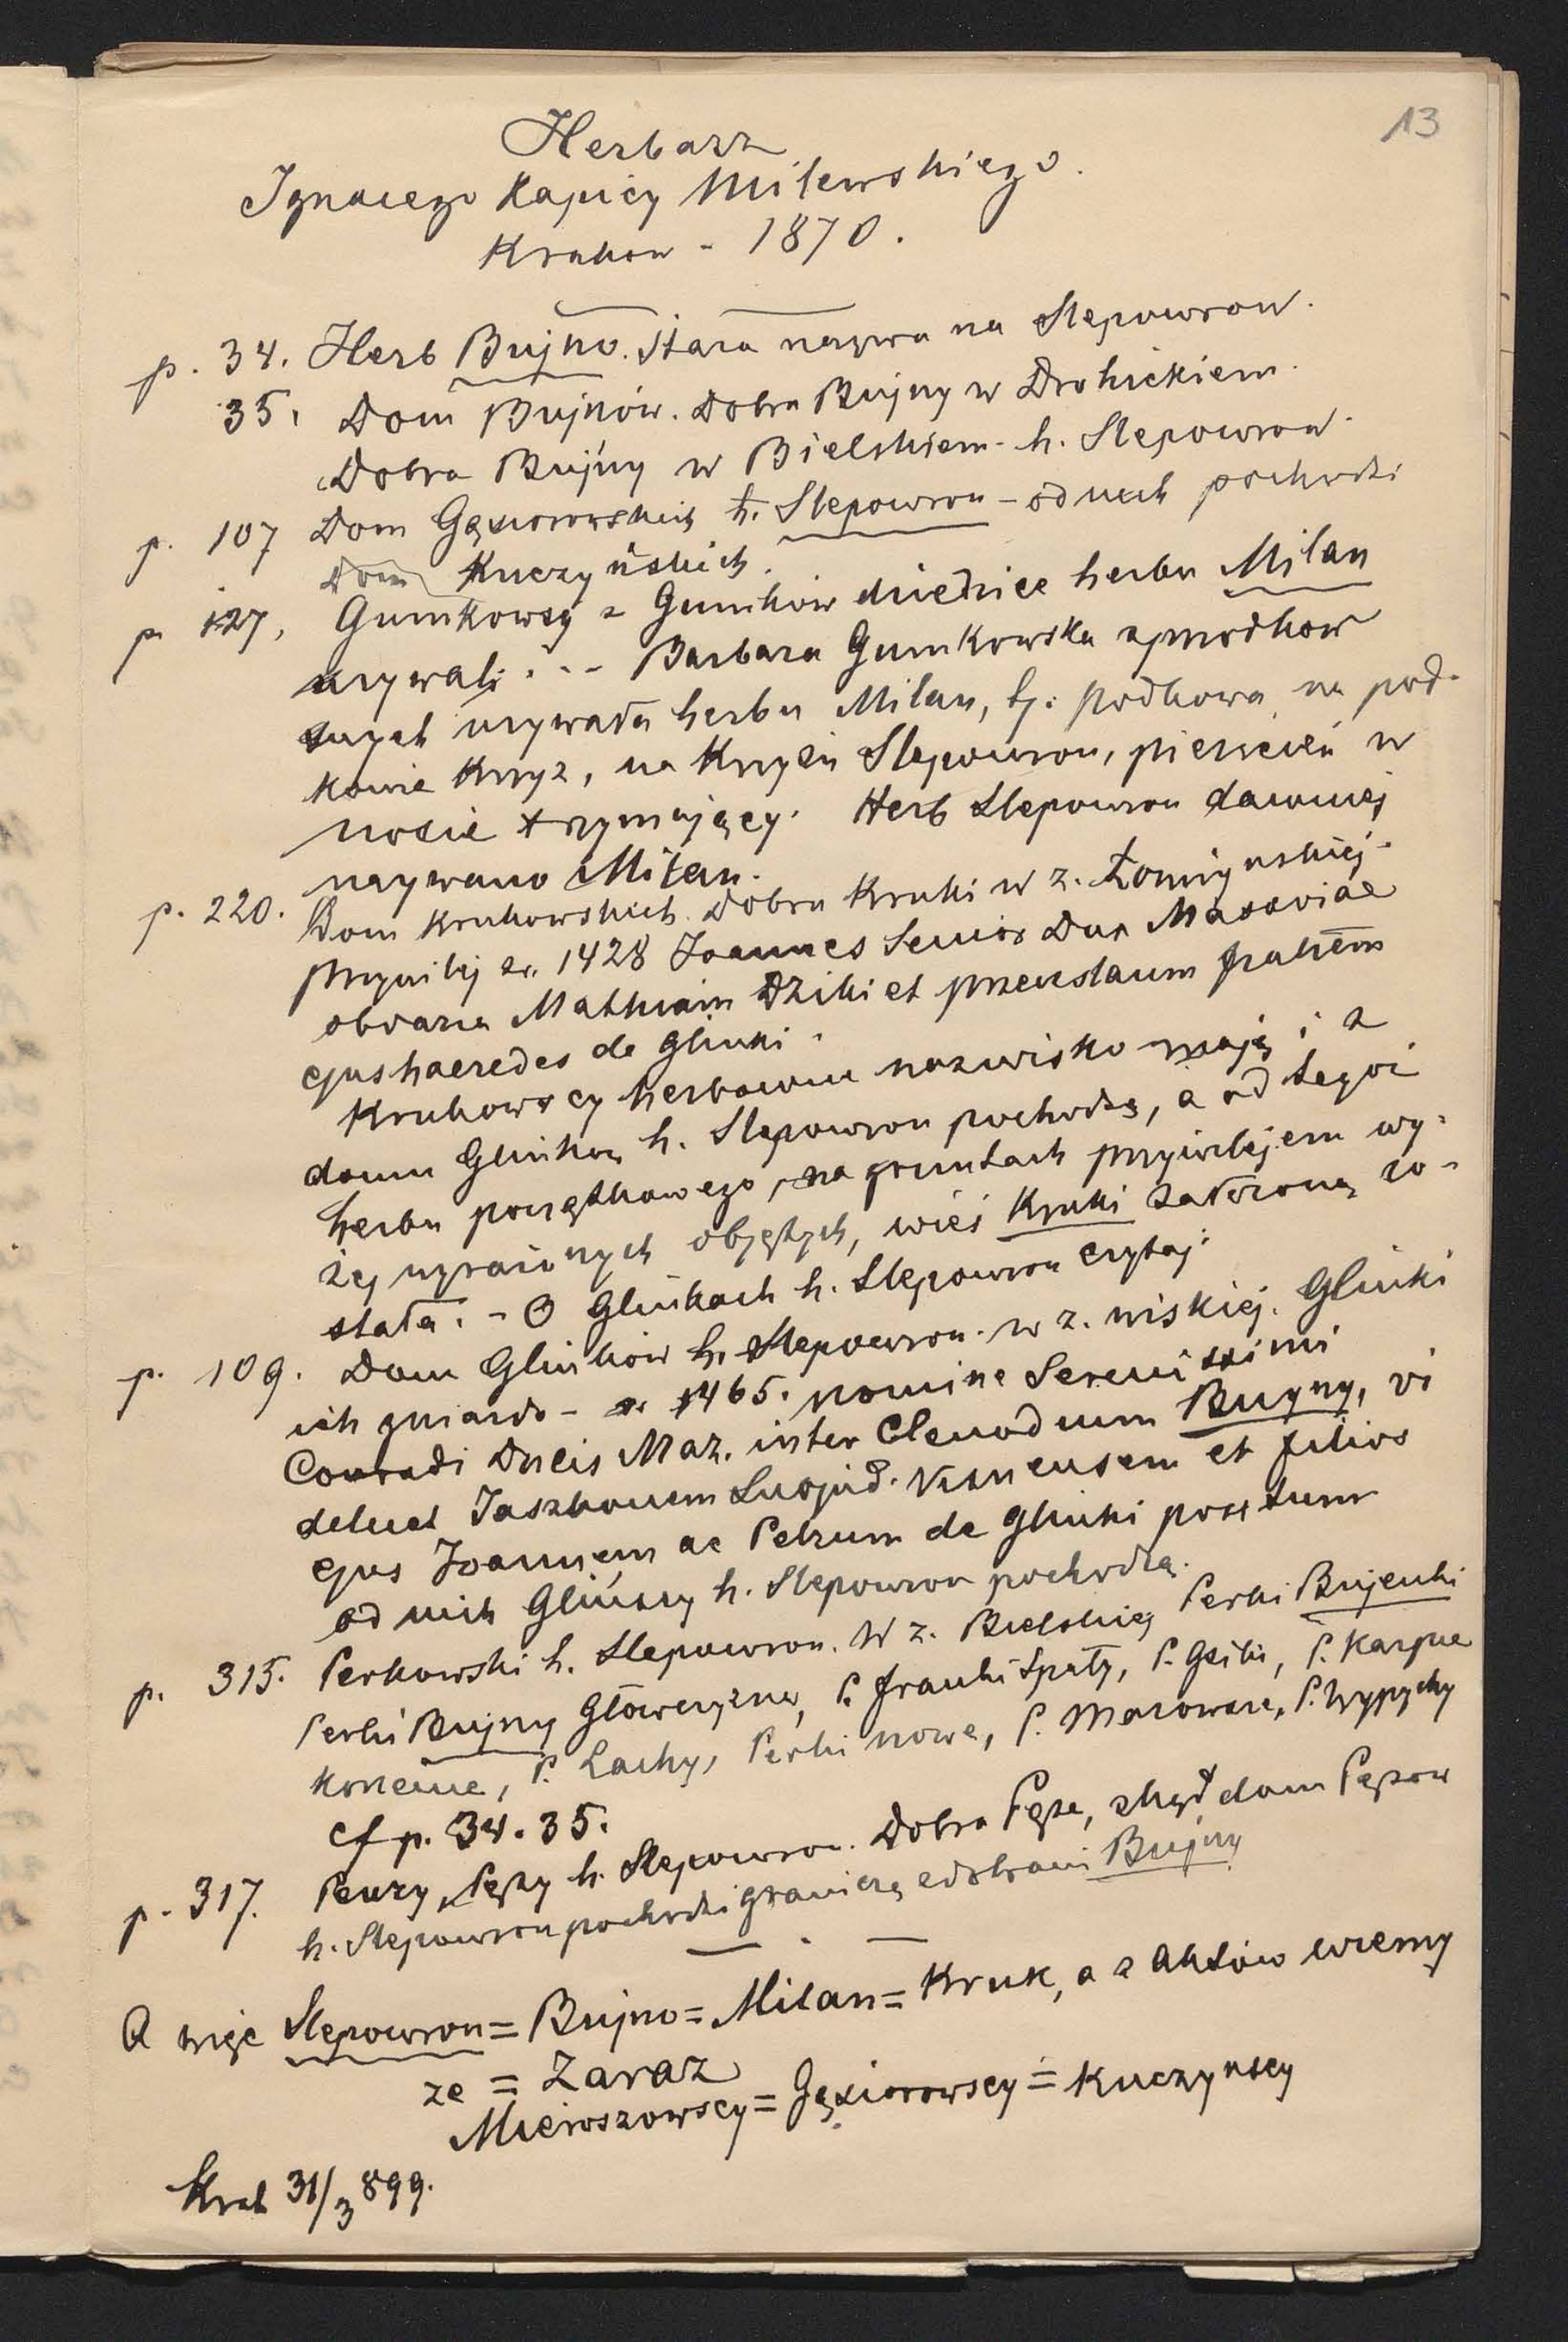 13
Herbarz
Ignacego Kapicy Milewskiego.
Krakow - 1870.
p. 34. Herb Bujno. Stara nazwa na Slepowron.
35. Dom Bujnów. Dobra Bujny w Drohickiem.
Dobra Bujny w Bielskiem - h. Slepowron.
p. 107 Dom Gąsiorowskich h. Slepowron - od nich pochodzi
Dom Kuczyńskich.
p. 127, Gumkowscy z Gumków dziedzice herbu Milan
używali . - - Barbara Gumkowska z przodków
swych używała herbu Milan, tj. podkowa, na pod-
kowie krzyż, na krzyżu Slepowron, pierścień w
nosie trzymający. Herb Slepowron dawniej
nazywano Milan.
p. 220. Dom Krukowskich. Dobra Kruki w z. Łomżynskiej.
Przywilej r. 1428 Joannes Senior Dux Masoviae
obdarza Mathiam Dziki et Przecslaum fratrem
ejus haeredes de Glinki.
Krukowscy herbowne nazwisko mają i z
domu Glinków h. Slepowron pochodzą, a od tegoż
herbu początkowego, na gruntach przywilejem wy-
żej wyrażonych objętych, wieś Kruki założoną zo-
stała. - O Glinkach h. Slepowron czytaj:
p. 109. Dom Glinków h. Slepowron. w z. wiskiej. Glinki
ich gniazdo - r. 1465. nomine Serenissimi
Conradi Ducis Maz. inter Clenodium Bugny, vi
delicet Jaszkonem Subjud. Visnensem et filios
ejus Joannem ac Petrum de Glinki positum
od nich Glińscy h. Slepowron pochodzą.
p. 315. Perkowski h. Slepowron. W z. Bielskiej Perki Bujenki
Perki Bujny Głowczyzna, P. Franki Spały, P. Gziki, P. Karpie
P. Lachy, Perki nowe, P. Mazowsze, P. Wypychy
cf p. 34. 35.
p. 317. Penzy, Pęzy h. Slepowron. Dobra Pęza, zkąd dom Pęzow
h. Slepowron pochodzi graniczą z dobrami Bujny
A więc Slepowron = Bujno = Milan = Kruk, a z Aktów wiemy
że = Zaraz
Mieroszowscy = Gąsiorowscy = Kuczynscy
Krak 31/3 899.